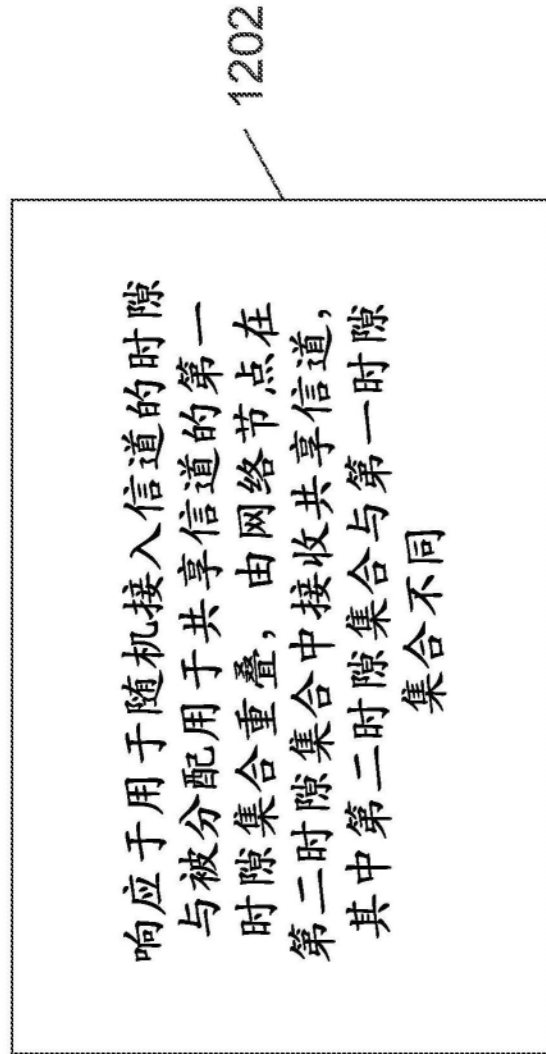 响应于用于随机接入信道的时隙
与被分配用于共享信道的第一
时隙集合重叠，由网络节点在
第二时隙集合中接收共享信道，
其中第二时隙集合与第一时隙
集合不同
1202